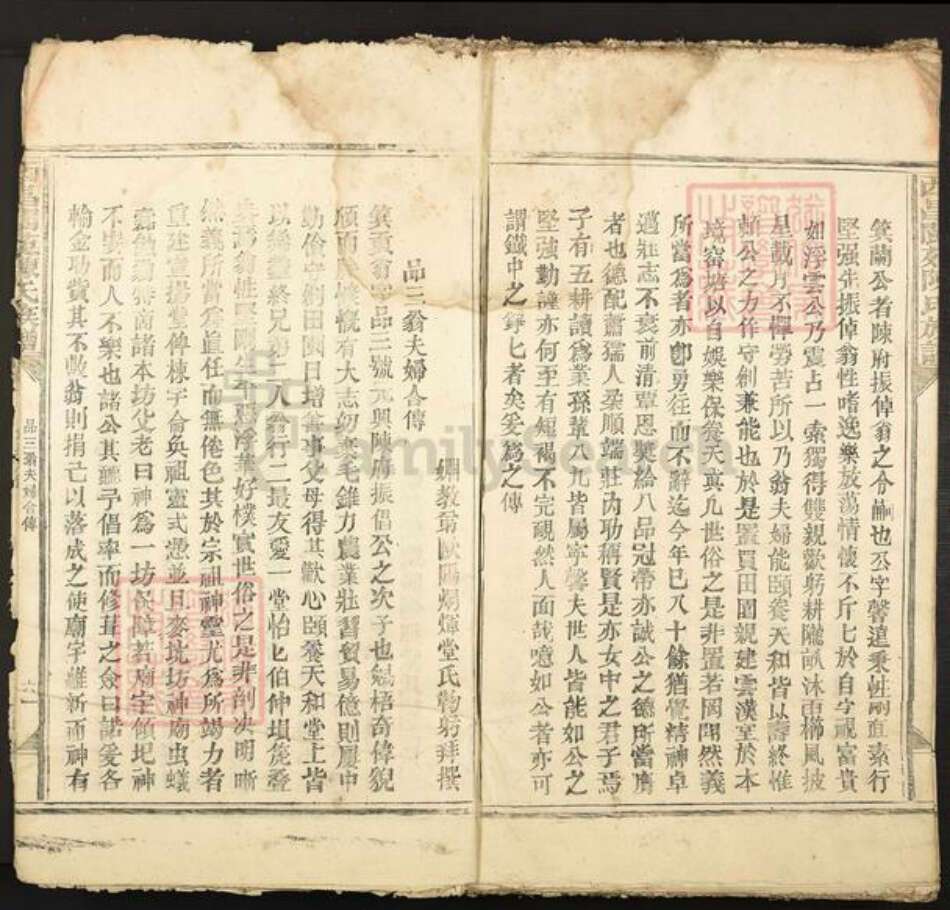 箕蘭公者陳府振倬翁之令嗣也公字馨遠秉性剛直素行
堅强先振倬翁性嗜逸樂放蕩情懷不斤匕於自守視富貴
如浮雲公乃震占一索獨得雙親歡躬耕隴畝沐雨櫛風披
星戴月不憚勞苦所以乃翁夫婦能頤養天和皆以壽終惟
賴公之力作守創兼能也於是置買田園親建雲漢堂於本
境 塘以自娛樂保養天真凡世俗之是非置若罔聞然義
所當為者亦卽勇往而不辭迄今年已八十餘猶覺精神卓
邁壯志不衰前清覃恩奬給八品冠帶亦誠公之德所當膺
者也德配蕭孺人柔順端莊內功稱賢是亦女中之君子焉
子有五耕讀為業孫輩八九皆屬寧馨夫世人皆能如公之
堅强勤謹亦何至有短褐不完覥然人面哉噫如公者亦可
謂鐵中之錚匕者矣爰為之傳
品三翁夫婦合傳
姻教弟歐陽炳煇堂氏鞠躬拜撰
箕 翁字品三號元興陳府振倡公之次子也魁梧奇偉貌
頎而長慷慨有大志幼棄毛錐力農業壯習貿易億則屢中
勤儉守創田園日增善事父母得其歡心頤養天和堂上皆
以 壽終兄弟二人翁行二最友愛一堂怡匕伯仲塤箎疊
奏 翁性 爾生平 浮華好樸實世俗之是非剖決明晰
然義所當為直任而無倦色其於宗祖神靈尤為所竭力者
重建宣揚堂俾棟宇侖奐祖靈式憑並且麥坑坊神廟虫蟻
蠹蝕翁特商諸本坊父老曰神為一坊保障若廟宇傾圮神
不安而人不樂也諸公其聽予倡率而修葺之僉曰諾爰各
輸金功貲其不敷翁則捐己以落成之使廟宇維新而神有
品三翁夫婦合傳
六